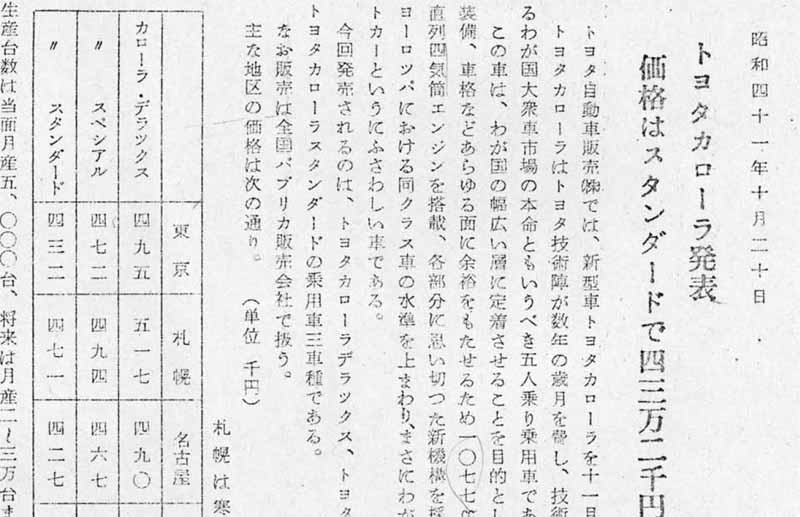 昭和四十一年十月二十日
トヨタカローラ発表
価格はスタンダードで四三万二千円
トヨタ自動車販売㈱では、新型車トヨタカローラを十一日
トヨタカローラはトヨタ技術陣が数年の歳月を費し、技術
るわが国大衆車市場の本命ともいうべき五人乗り乗用車であ
この車は、わが国の幅広い層に定着させることを目的とし
装備、車格などあらゆる面に余裕をもたせるため一〇七七
直列四気筒エンジンを搭載、各部分に思い切つた新機構を採
ヨーロツパにおける同クラス車の水準を上まわり、まさにわが
トカーというにふさわしい車である。
今回発売されるのは、トヨタカローラデラツクス、トヨタ
トヨタカローラスタンダードの乗用車三車種である。
なお販売は全国パブリカ販売会社で扱う。
主な地区の価格は次の通り。 (単位 千円)
札幌は寒
東京 札幌 名古屋
カローラ・デラツクス 四九五 五一七 四九〇
〃 スペシアル 四七二 四九四 四六七
〃 スタンダード 四三二 四七一 四二七
生産台数は当面月産五、〇〇〇台、将来は月産二～三万台ま